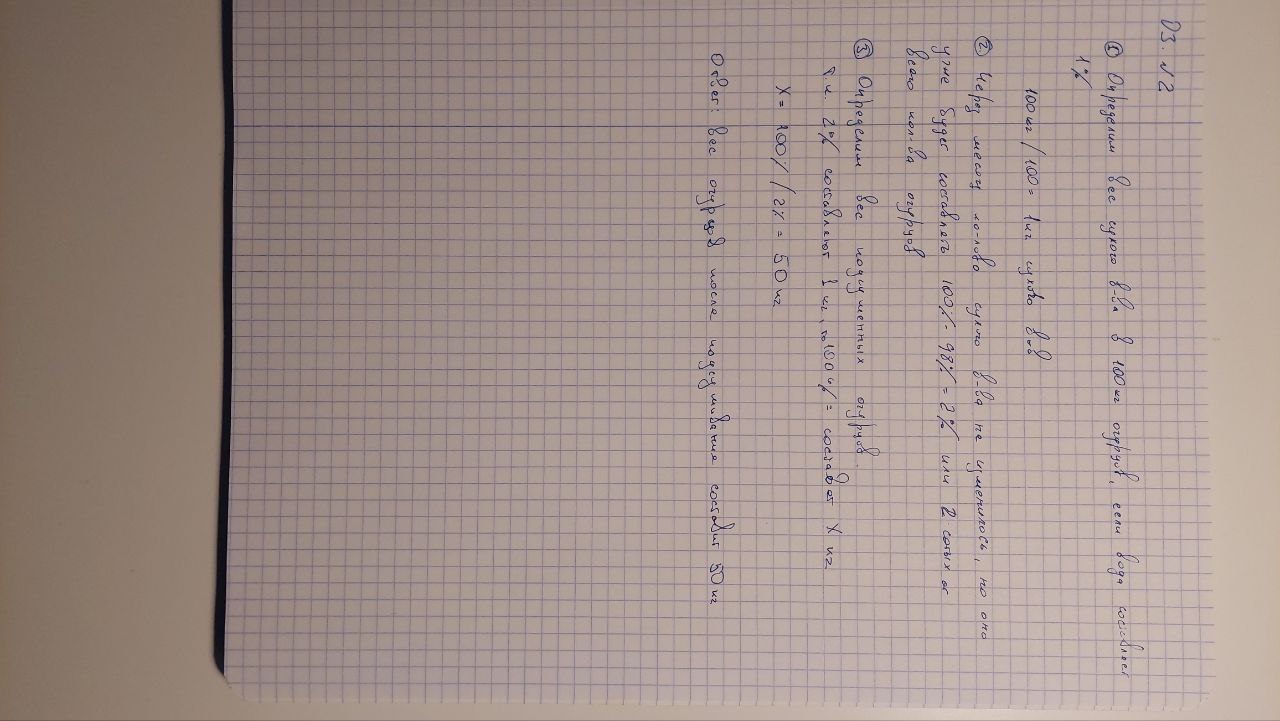 ДЗ. №2
① Определим вес сухого в-ва в 100 кг огурцов, если вода составляет
1%
100 кг / 100 = 1 кг сухого в-в
② Через месяц ко-лово сухого в-ва не изменилось, но оно
уже будет составлять 100% - 98% = 2% или 2 сотых от
всего кол-ва огурцов
③ Определим вес подсушенных огурцов.
т.к. 2% составляют 1 кг, то 100% = составет X кг
X = 100% / 2% = 50 кг
Ответ: вес огурцов после подсушивания составит 50 кг